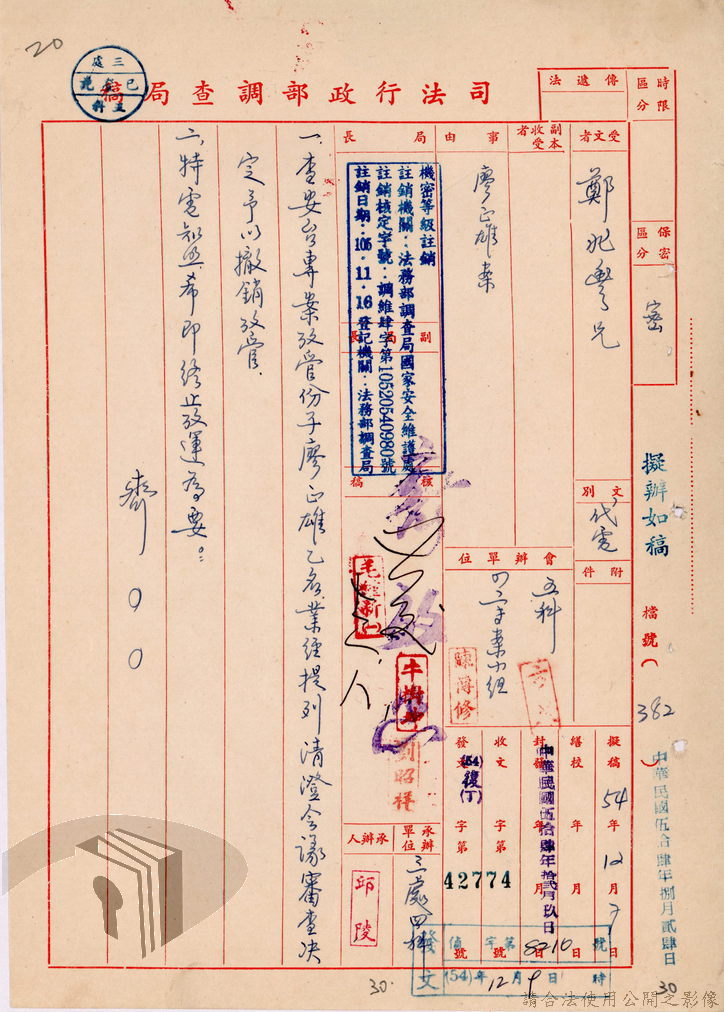 20
三處
已登記
司法行政部調查局稿
傳遞法
時限區分
受文者
鄭兆豐兄
保密區分
密
副本收受者
事由
廖正雄案
局長
副局長
機密等級註銷
註銷機關：法務部調查局國家安全維護處
註銷核定字號：調維肆字第10520540980號
註銷日期：105.11.16 登記機關：法務部調查局
核稿
文別
代電
附件
會辦單位
五科
擬辦如稿
檔號
382
中華民國伍拾肆年捌月貳肆日
擬稿 54年12月7日
繕校 年 月 日
封發 年 月 日
中華民國伍拾肆年拾貳月玖日
收文 字第 號
發文 (54)復(丁)字第 號
42774
陳溥修
牛樹坤
劉昭祥
承辦單位
三處四科
承辦人
邱陵
一、查安台專案攷管份子廖正雄乙名，業經提列清澄會議審查決
定予以撤銷攷管。
二、特電知照，希即終止攷運為要。
齊〇〇
發文
偵字第8210號
(54)年12月9日 時
30.
30
請合法使用公開之影像